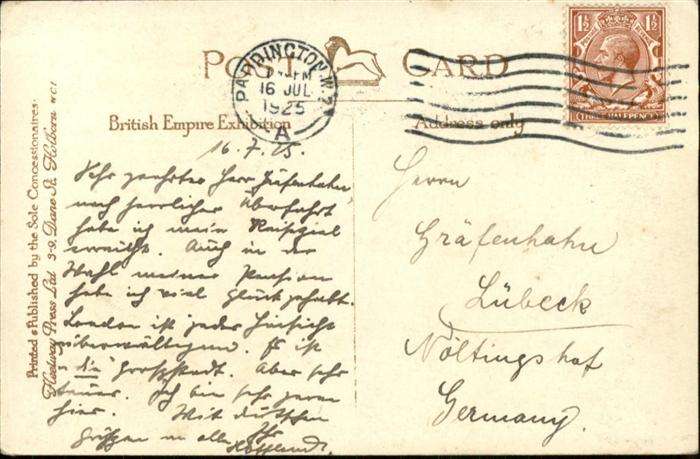 POST CARD
PADDINGTON. W.2
16 JUL
1925
A
1½ 1½
THREE HALFPENCE
British Empire Exhibition
Address only
Printed & Published by the Sole Concessionaires:
Fleetway Press Ltd 3-9, Dane St. Holborn WC1
16.7.25.
Sehr geehrter Herr Gräfenhahn,
nach herrlicher Überfahrt
habe ich mein Reiseziel
erreicht. Auch in der
Wahl meiner Pension
habe ich viel Glück gehabt.
London ist jeder Hinsicht
überwältigend. Es ist
die Großstadt. Aber sehr
teuer. Ich bin sehr gerne
hier. Mit deutschen
Grüßen an alle Ihr
Herrn
Gräfenhahn
Lübeck
Nöltingshof
Germany.